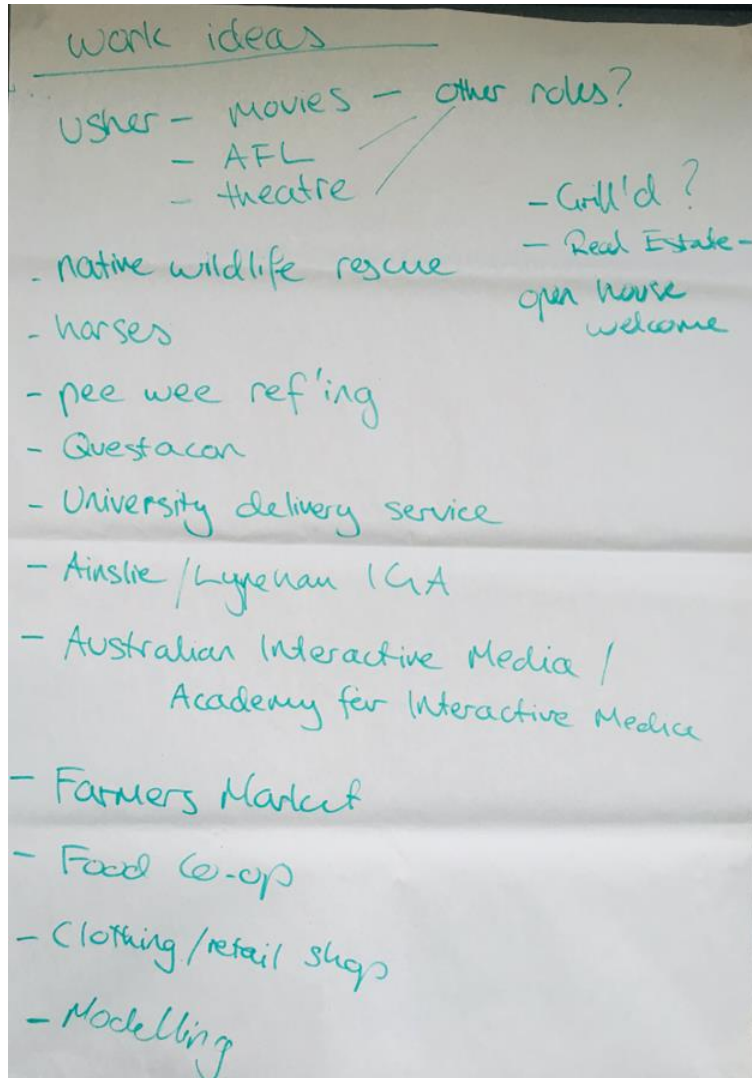 work ideas
usher - movies - other roles?
- AFL
- theatre
- Grill'd ?
- Real Estate -
open house
welcome
- native wildlife rescue
- horses
- pee wee ref'ing
- Questacon
- University delivery service
- Ainslie / Lyneham IGA
- Australian Interactive Media /
Academy for Interactive Media
- Farmers Market
- Food Co-op
- Clothing/retail shop
- Modelling